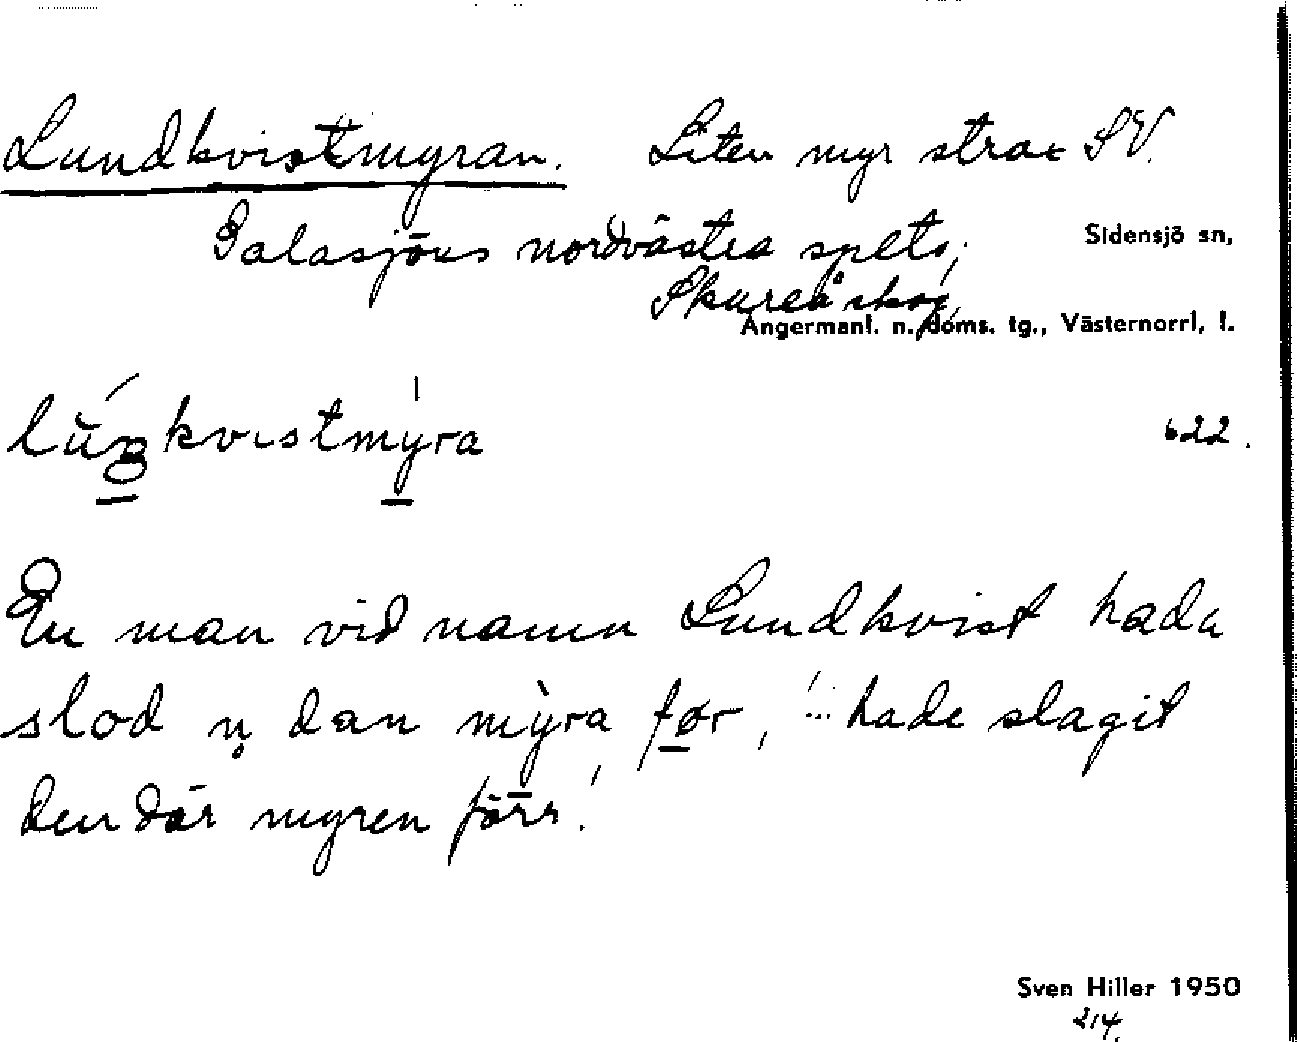 Lundkvistmyran. Liten myr strax SV.
Galasjöns nordvästra spets;
Sidensjö sn,
Skureå skog,
Ångermanl. n. doms. tg., Västernorrl, l.
kvistmyra
622.
En man vid namn Lundkvist hada
slod n̥ dan mỳra før, '... hade slagit
den där myren förr.'
Sven Hiller 1950
214.